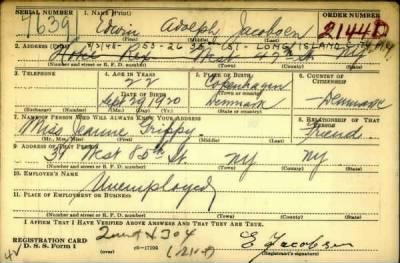 SERIAL NUMBER 1. NAME (Print) ORDER NUMBER
7639 Edwin Adolph Jacobsen 2144
2. ADDRESS (Print) LONG ISLAND
Hotel Rex West 47 St NY
(Number and street or R. F. D. number) (Town) (County) (State)
3. TELEPHONE 4. AGE IN YEARS 5. PLACE OF BIRTH 6. COUNTRY OF CITIZENSHIP
22 Copenhagen
DATE OF BIRTH (Town or county)
Sept 29 1920 Denmark Denmark
(Exchange) (Number) (Mo.) (Day) (Yr.) (State or country)
7. NAME OF PERSON WHO WILL ALWAYS KNOW YOUR ADDRESS 8. RELATIONSHIP OF THAT PERSON
Miss Jeanne Trippy Friend
(Mr., Mrs., Miss) (First) (Middle) (Last)
9. ADDRESS OF THAT PERSON
West 85th St. NY NY
(Number and street or R. F. D. number) (Town) (County) (State)
10. EMPLOYER'S NAME
Unemployed
11. PLACE OF EMPLOYMENT OR BUSINESS
(Number and street or R. F. D. number) (Town) (County) (State)
I AFFIRM THAT I HAVE VERIFIED ABOVE ANSWERS AND THAT THEY ARE TRUE.
REGISTRATION CARD
D. S. S. Form 1 (over) E Jacobsen
(Registrant's signature)